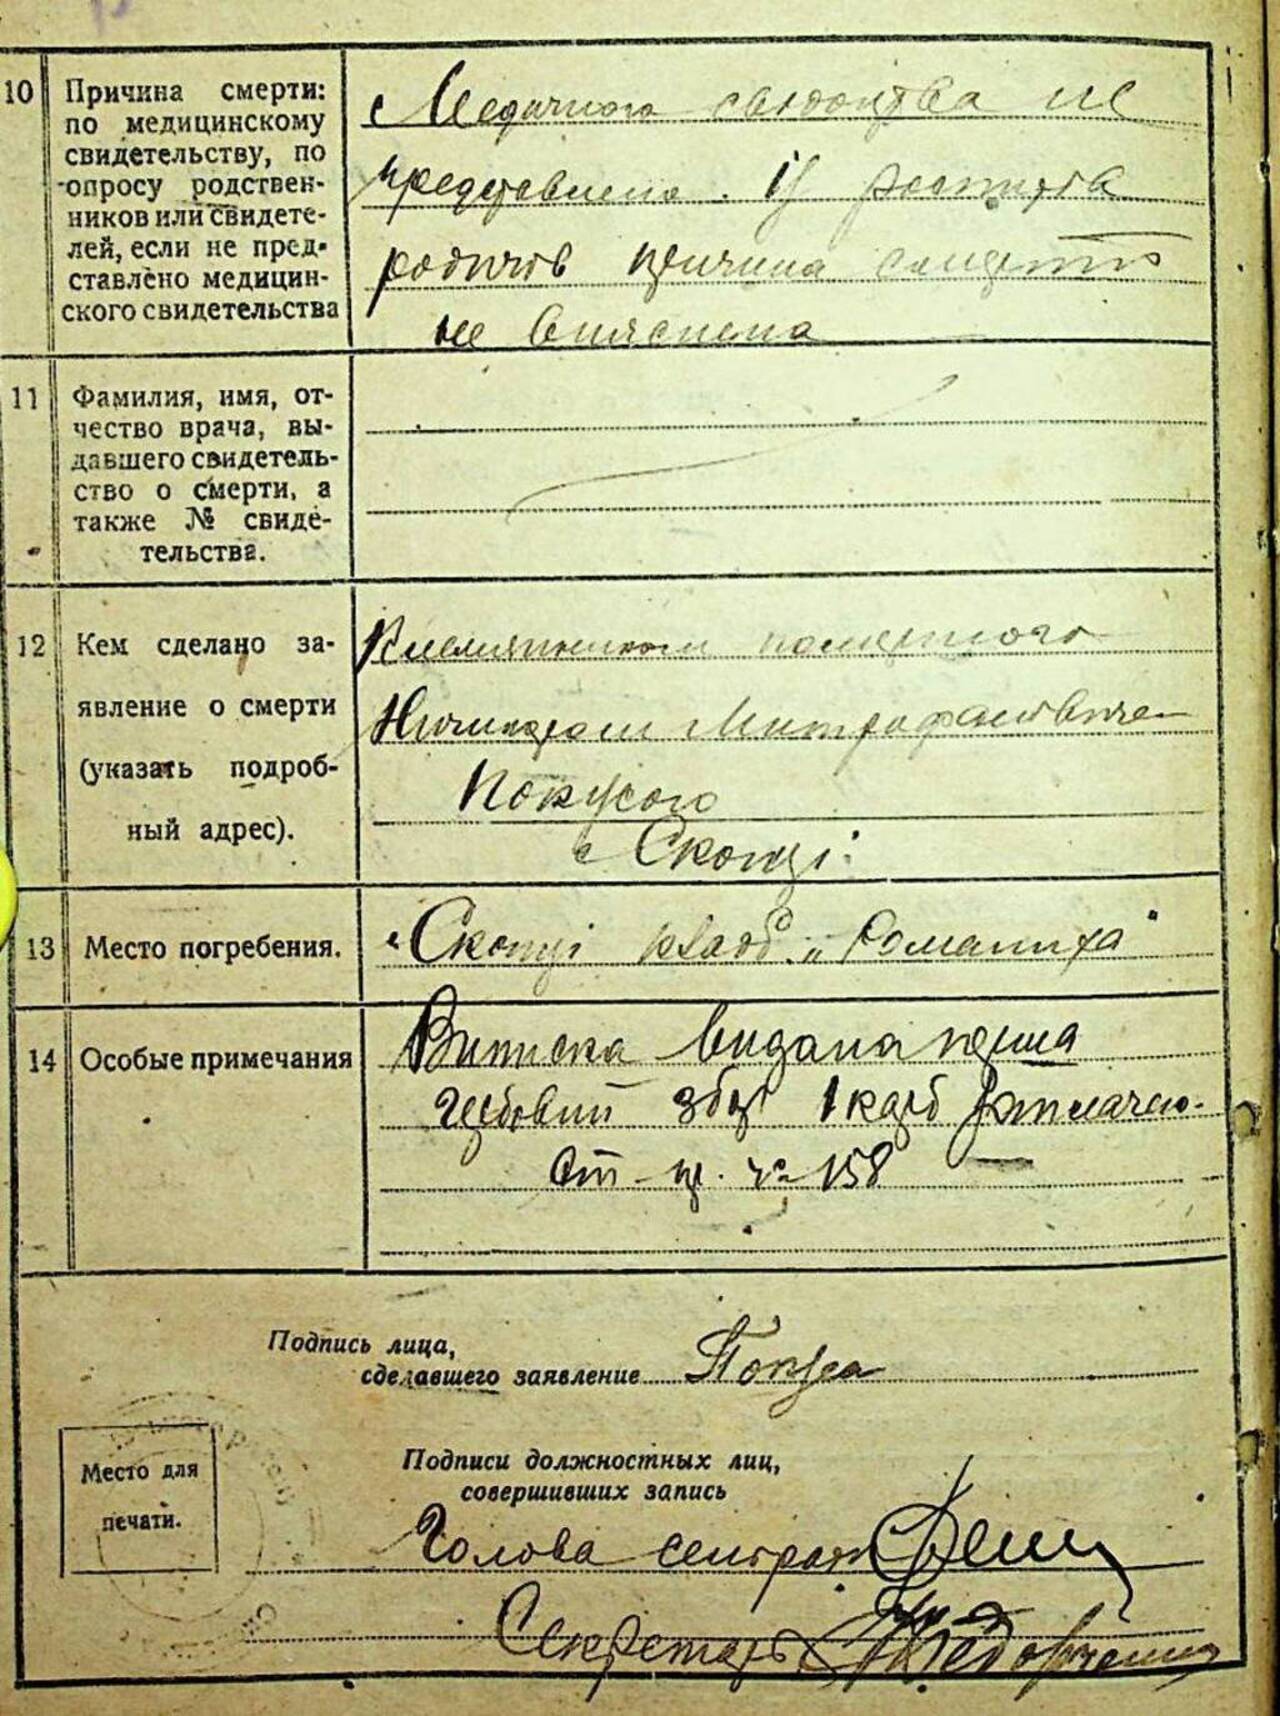 10 Причина смерти:
по медицинскому
свидетельству, по
опросу родствен-
ников или свидете-
лей, если не пред-
ставлено медицин-
ского свидетельства
Медичного свідоцтва не
представлено. Із роспита
родичів причина смерти
не вияснена
11 Фамилия, имя, от-
чество врача, вы-
давшего свидетель-
ство о смерти, а
также № свиде-
тельства.
12 Кем сделано за-
явление о смерти
(указать подроб-
ный адрес).
Племянником помершого
Митрофановичем
Покусою
с Скопці
13 Место погребения.
с Скопці кладб. „Романиха"
14 Особые примечания
Виписка видана перша
збір 1 карб
№ 158
Подпись лица,
сделавшего заявление Покуса
Место для
печати.
Подписи должностных лиц,
совершивших запись
Голова сельради
Секретарь